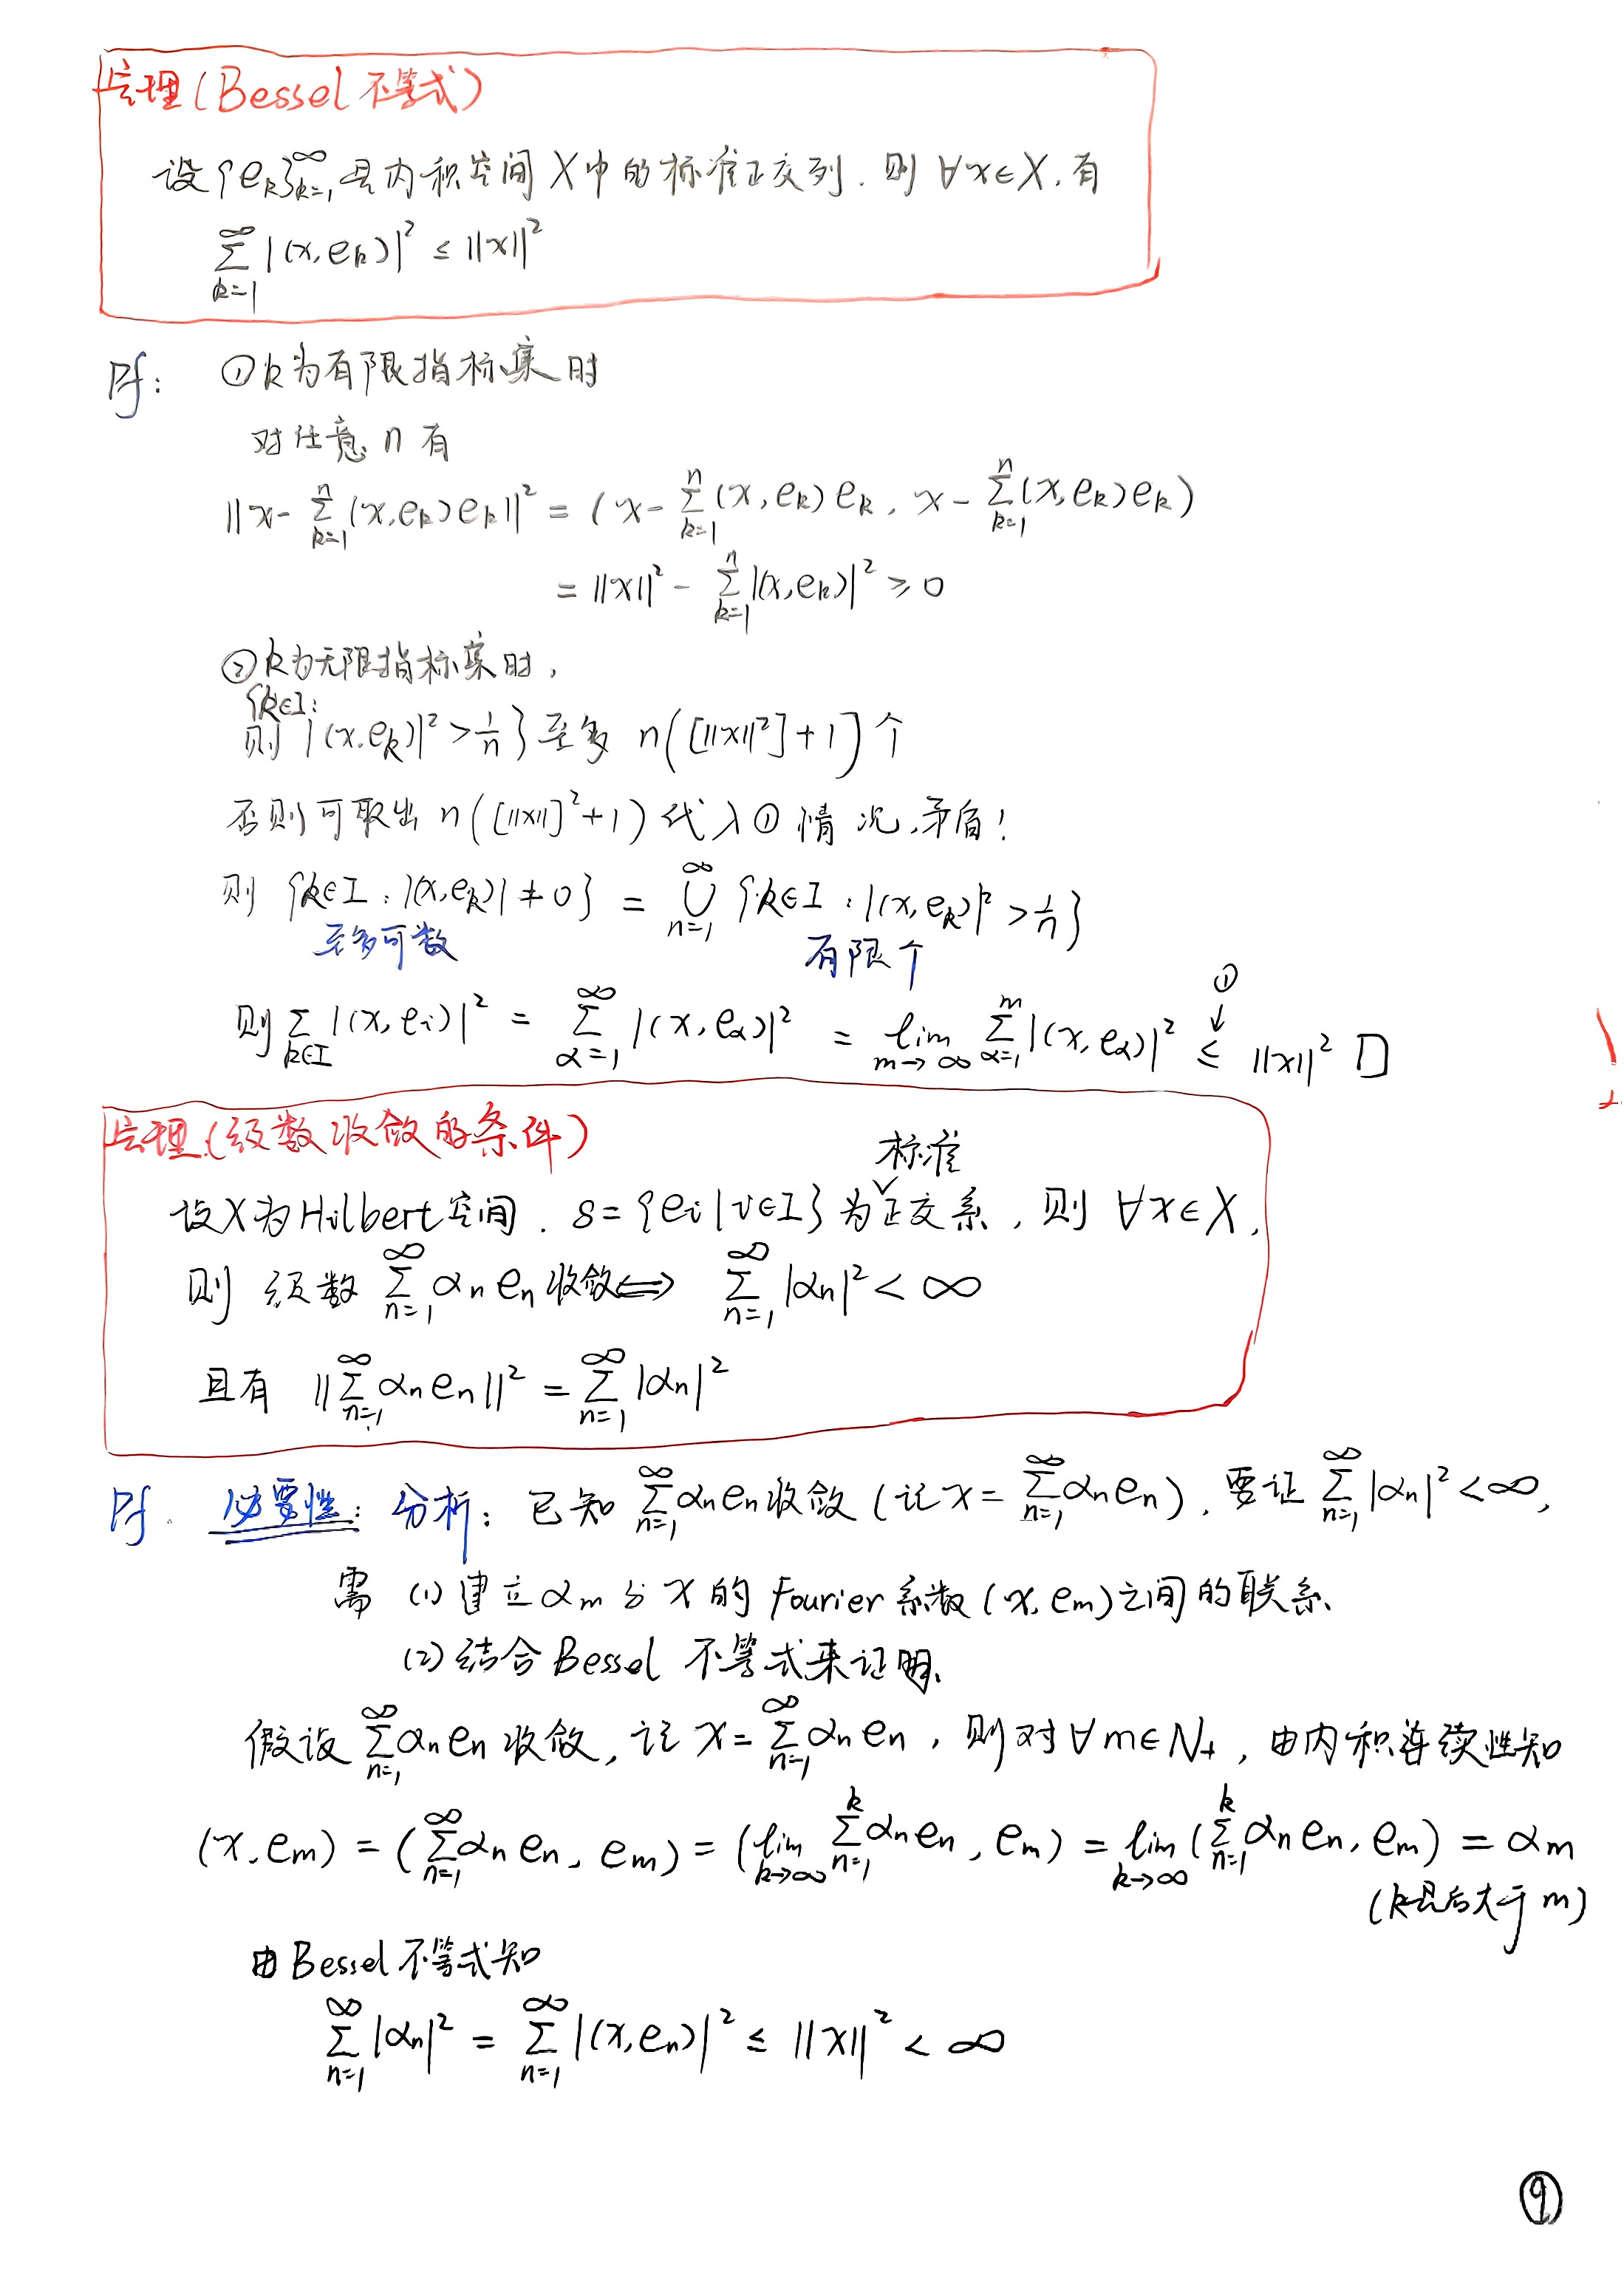 定理(Bessel 不等式)
设{e_k}_{k=1}^∞是内积空间X中的标准正交列.则 ∀x∈X,有
∑_{k=1}^∞ |(x,e_k)|² ≤ ||x||²
Pf: ①k为有限指标集时
对任意n有
||x-∑_{k=1}^n (x,e_k)e_k||² = (x-∑_{k=1}^n (x,e_k)e_k, x-∑_{k=1}^n (x,e_k)e_k)
= ||x||² - ∑_{k=1}^n |(x,e_k)|² ≥ 0
②k为无限指标集时,
则{k∈I: |(x,e_k)|² > 1/n}至多 n([||x||²]+1)个
否则可取出 n([||x||]²+1)代入①情况,矛盾!
则 {k∈I: |(x,e_k)| ≠ 0} = ∪_{n=1}^∞ {k∈I: |(x,e_k)|² > 1/n}
至多可数 有限个
①
↓
则 ∑_{k∈I} |(x,e_i)|² = ∑_{α=1}^∞ |(x,e_α)|² = lim_{m→∞} ∑_{α=1}^m |(x,e_α)|² ≤ ||x||² □
定理(级数收敛的条件)
标准
设X为Hilbert空间. S={e_i|i∈I}为正交系, 则 ∀x∈X,
则 级数 ∑_{n=1}^∞ α_n e_n 收敛⟺ ∑_{n=1}^∞ |α_n|² < ∞
且有 ||∑_{n=1}^∞ α_n e_n||² = ∑_{n=1}^∞ |α_n|²
Pf. 必要性: 分析: 已知 ∑_{n=1}^∞ α_n e_n 收敛(记x=∑_{n=1}^∞ α_n e_n), 要证 ∑_{n=1}^∞ |α_n|² < ∞,
需 (1)建立α_m与x的Fourier系数(x,e_m)之间的联系.
(2)结合Bessel 不等式来证明.
假设 ∑_{n=1}^∞ α_n e_n 收敛, 记 x=∑_{n=1}^∞ α_n e_n, 则对∀m∈N₊, 由内积连续性知
(x,e_m) = (∑_{n=1}^∞ α_n e_n, e_m) = (lim_{k→∞} ∑_{n=1}^k α_n e_n, e_m) = lim_{k→∞} (∑_{n=1}^k α_n e_n, e_m) = α_m
(k最后大于m)
由Bessel不等式知
∑_{n=1}^∞ |α_n|² = ∑_{n=1}^∞ |(x,e_n)|² ≤ ||x||² < ∞
⑨